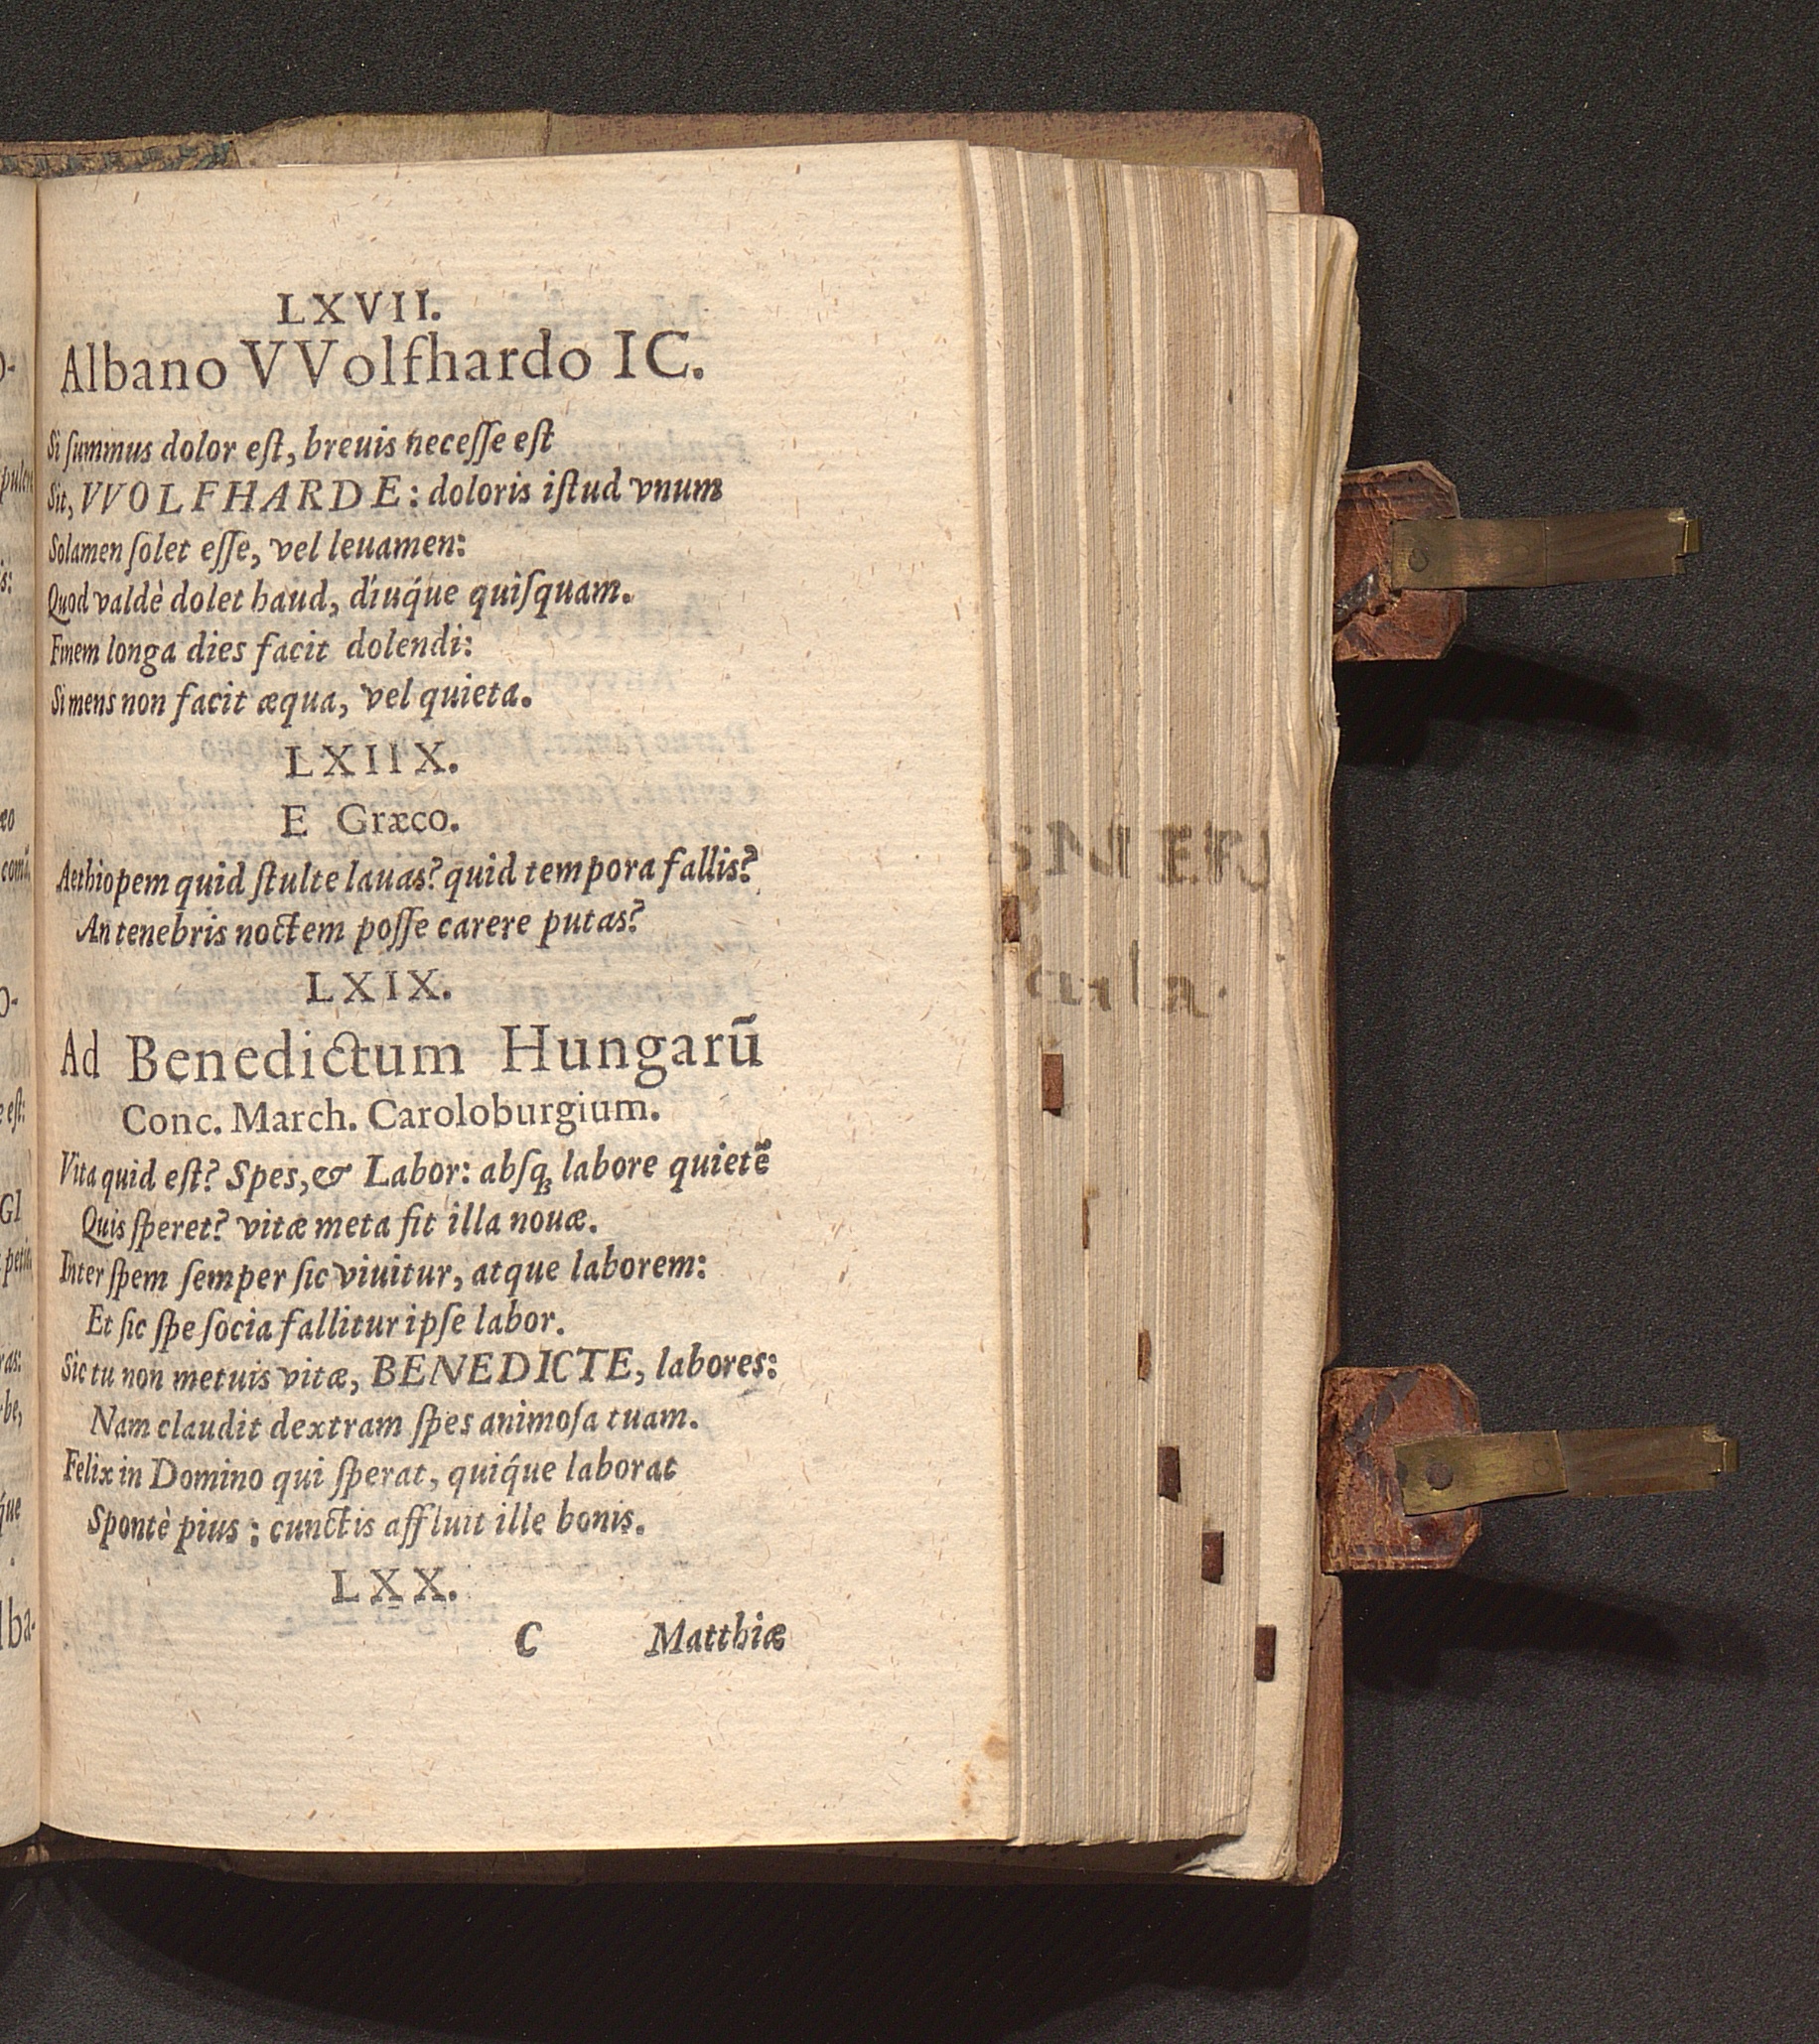 LXVII.
Albano VVolfhardo IC.
Si ſummus dolor eſt, breuis neceſſe eſt
Sit, VVOLFHARDE: doloris iſtud vnum
Solamen ſolet eſſe, vel leuamen:
Quod valdè dolet haud, díuq́ue quiſquam.
Finem longa dies facit dolendi:
Si mens non facit æqua, vel quieta.
LXIIX.
E Græco.
Aethiopem quid ſtulte lauas? quid tempora fallis?
An tenebris noctem poſſe carere putas?
LXIX.
Ad Benedictum Hungarũ
Conc. March. Caroloburgium.
Vita quid eſt? Spes, & Labor: abſq; labore quietẽ
Quis ſperet? vitæ meta fit illa nouæ.
Inter ſpem ſemper ſic viuitur, atque laborem:
Et ſic ſpe ſocia fallitur ipſe labor.
Sic tu non metuis vitæ, BENEDICTE, labores:
Nam claudit dextram ſpes animoſa tuam.
Felix in Domino qui ſperat, quiq́ue laborat
Spontè pius: cunctis affluit ille bonis.
LXX.
C Matthiæ